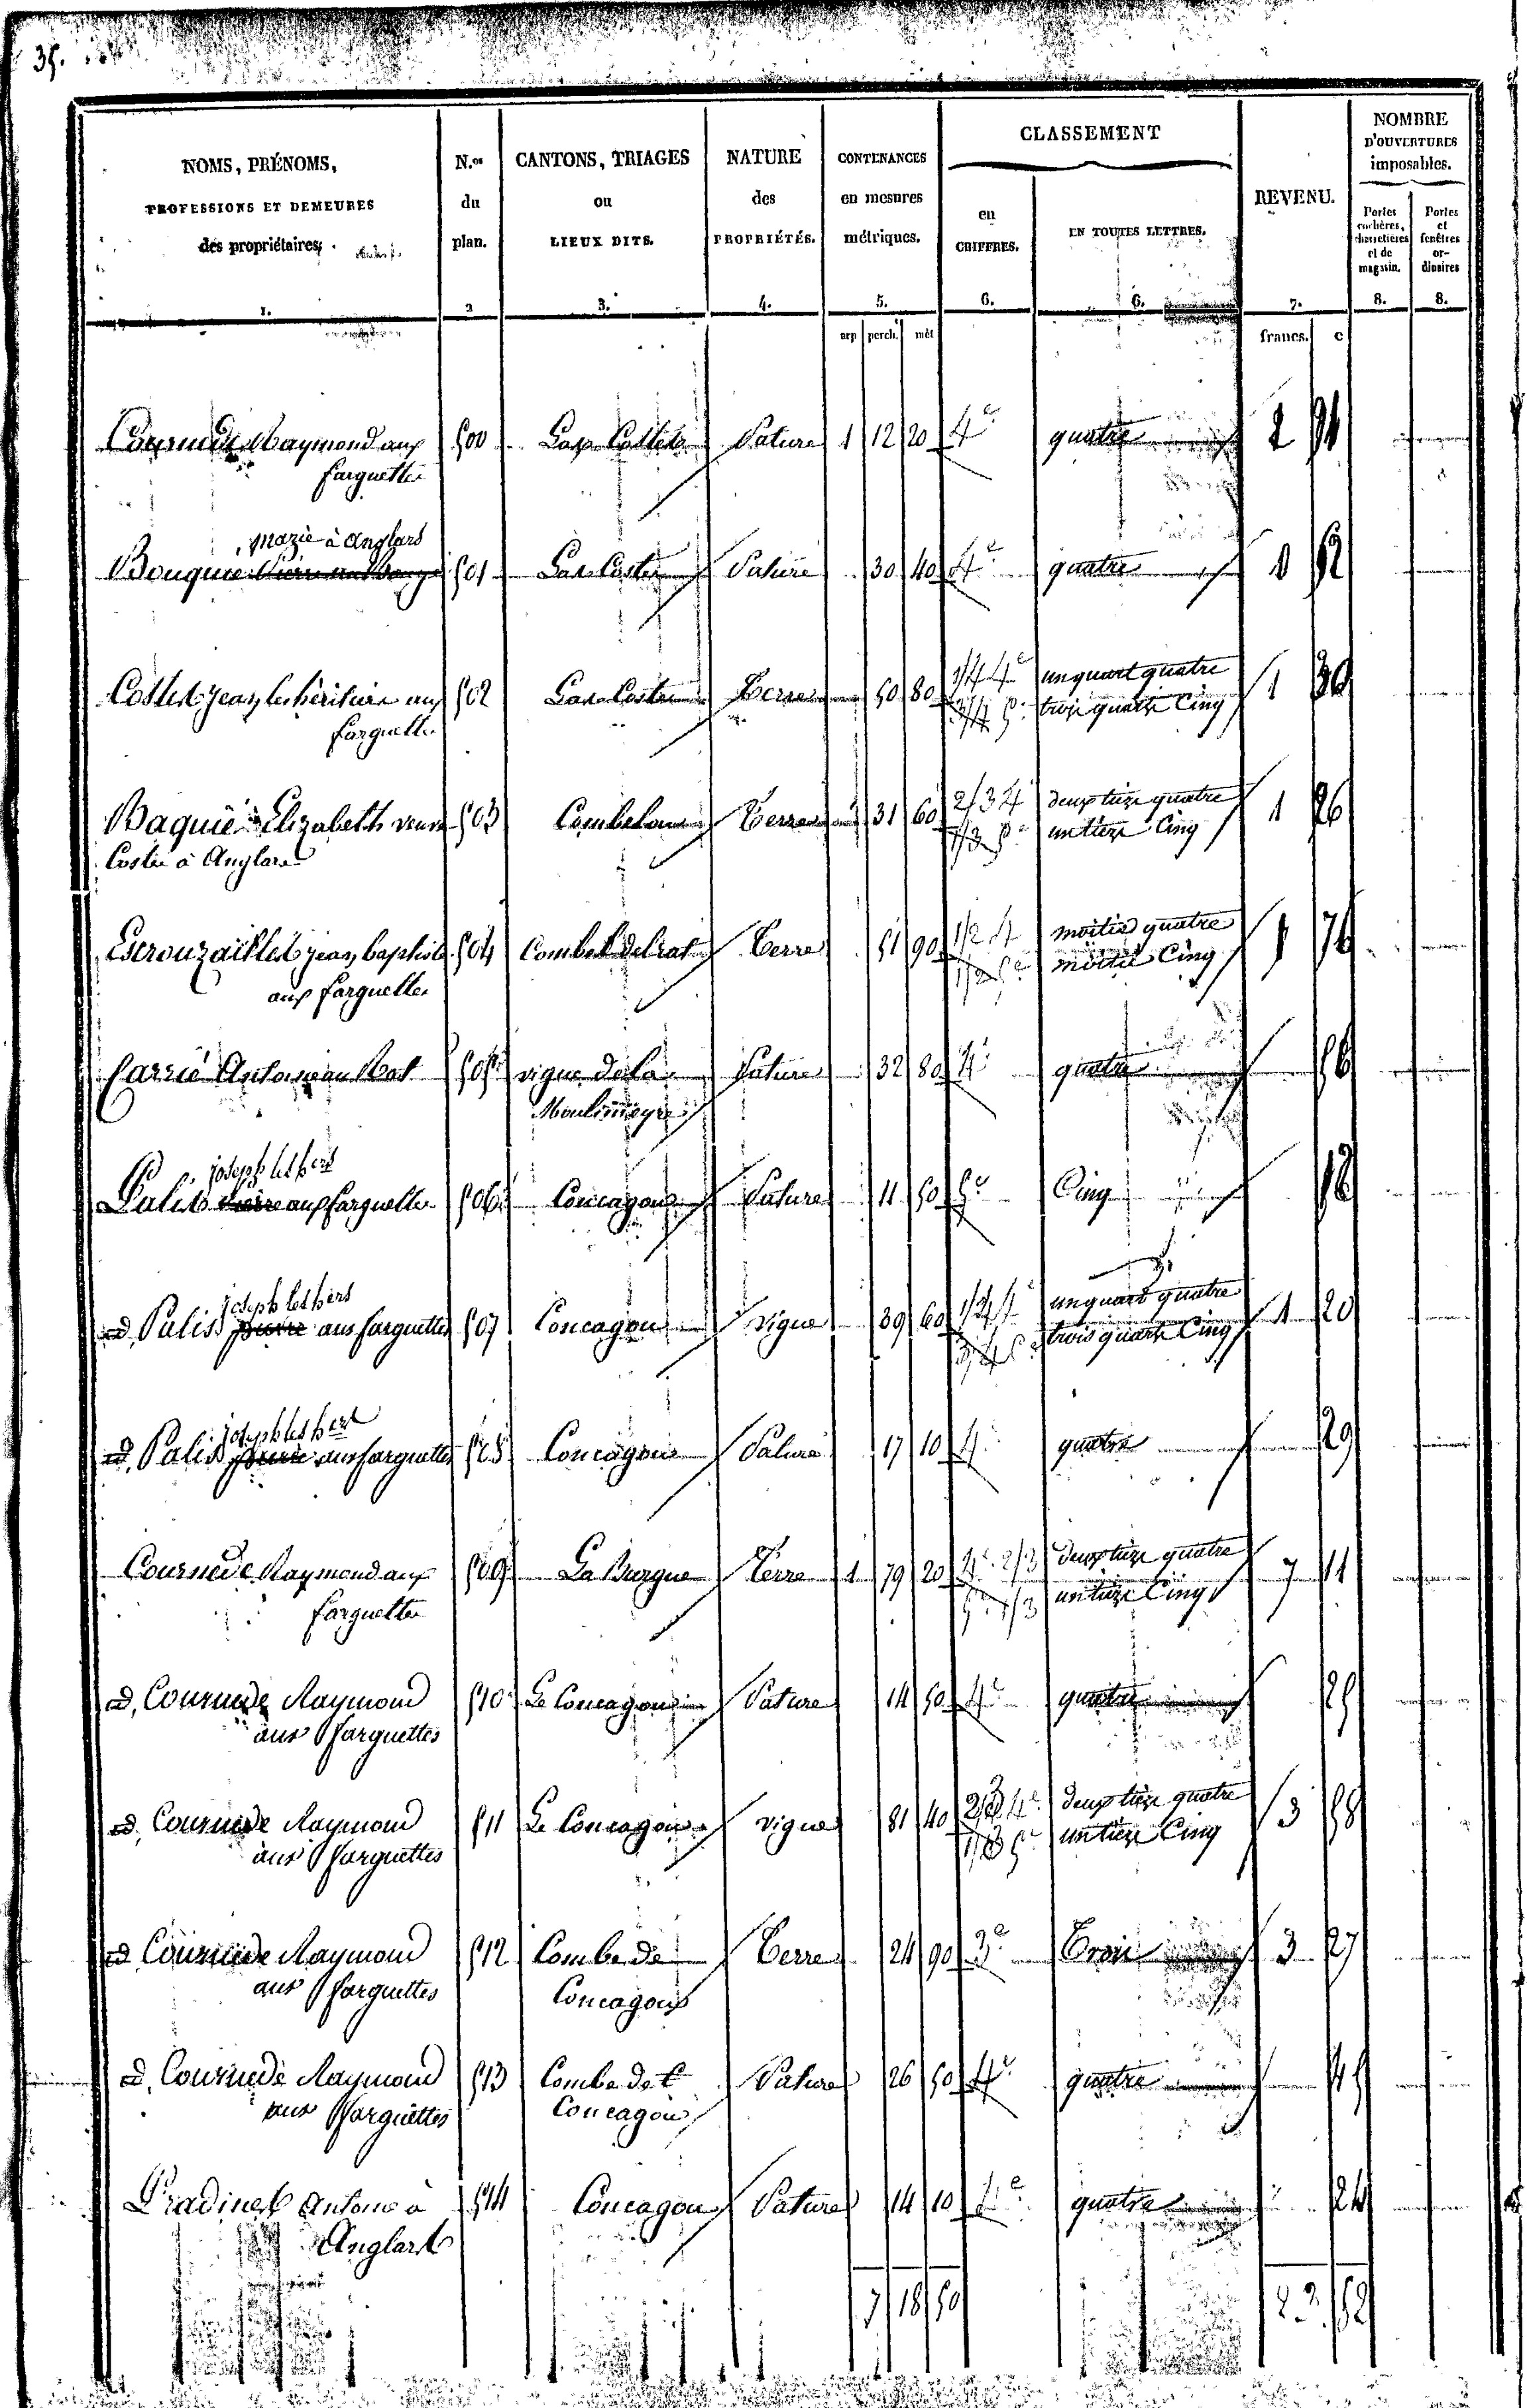 35.
NOMS, PRÉNOMS, PROFESSIONS ET DEMEURES des propriétaires.
N.os du plan.
CANTONS, TRIAGES ou LIEUX DITS.
NATURE des PROPRIÉTÉS.
CONTENANCES en mesures métriques.
CLASSEMENT
en CHIFFRES.
EN TOUTES LETTRES.
REVENU.
NOMBRE D'OUVERTURES imposables.
Portes cochères, charretières et de magasin.
Portes et fenêtres ordinaires
1. 2 3. 4. 5. 6. 6. 7. 8. 8.
arp perch. mèt francs. c
Cournède Raymond aux 500 Pature 1 12 20 4e quatre 2 91
farguettes
marie à Anglars
Bouquié 501 Pature 30 40 4e quatre 52
Costes jean, les héritiers aux 502 Terre 50 80 1/4 4e un quart quatre 1 30
farguettes 3/4 5e trois quarts Cinq
Baquié Elizabeth veuve 503 Combelou Terre 31 60 2/3 4 deux tiers quatre 1 26
Costes à Anglars 1/3 5e un tiers Cinq
jean baptiste 504 Terre 51 90 1/2 4 moitié quatre 1 76
aux farguettes 1/2 5e moitié Cinq
Carrié Antoine au 505 vigne de la Pature 32 80 4e quatre 56
Moulineyre
joseph les hers
Palis pierre aux farguettes 506 Concagou Pature 11 50 5e Cinq
joseph les hers
id. Palis pierre aux farguettes 507 Concagou vigne 39 60 1/4 4 un quart quatre 1 20
3/4 5e trois quarts Cinq
joseph les hers
id. Palis pierre aux farguettes 508 Concagou Pature 17 10 4e quatre 29
Cournède Raymond aux 509 La Burgue Terre 1 79 20 4e 2/3 deux tiers quatre 7 11
farguettes 5e 1/3 un tiers Cinq
id. Cournède Raymond 510 Le Concagou Pature 14 50 4e quatre 25
aux farguettes
id. Cournède Raymond 511 Le Concagou vigne 81 40 2/3 4e deux tiers quatre 3 58
aux farguettes 1/3 5e un tiers Cinq
id. Cournède Raymond 512 Combe de Terre 24 90 3e Trois 3 27
aux farguettes Concagou
id. Cournède Raymond 513 Combe de Pature 26 50 4e quatre 45
aux farguettes Concagou
Pradines Antoine à 514 Concagou Pature 14 10 4e quatre 24
Anglars
7 18 50 23 52